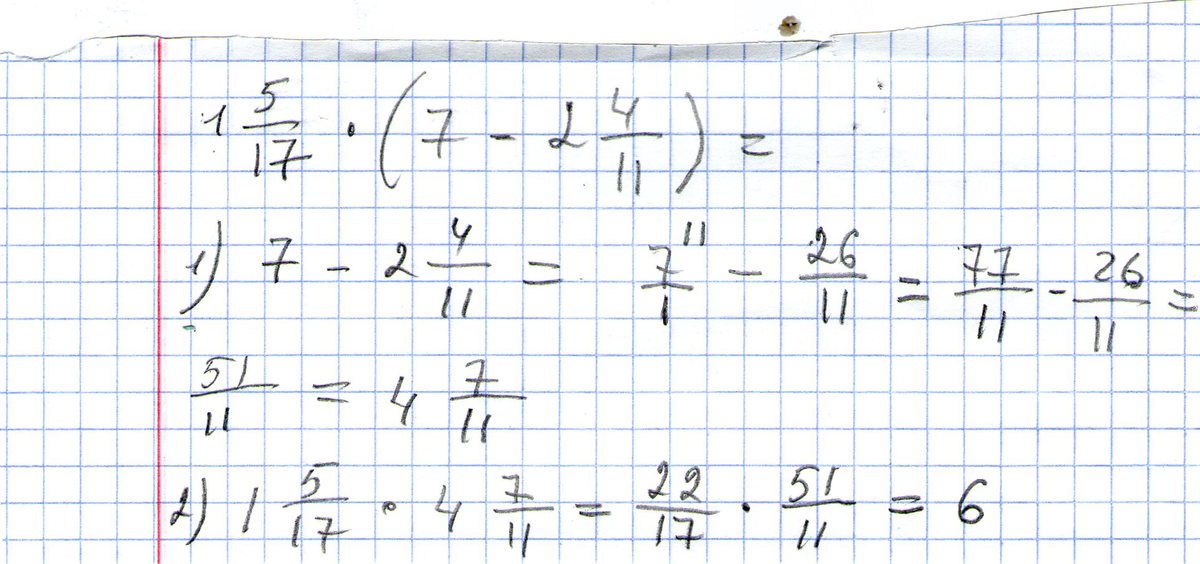 1 5/17 · (7 - 2 4/11) =
1) 7 - 2 4/11 = 7/1 ¹¹ - 26/11 = 77/11 - 26/11 =
51/11 = 4 7/11
2) 1 5/17 · 4 7/11 = 22/17 · 51/11 = 6